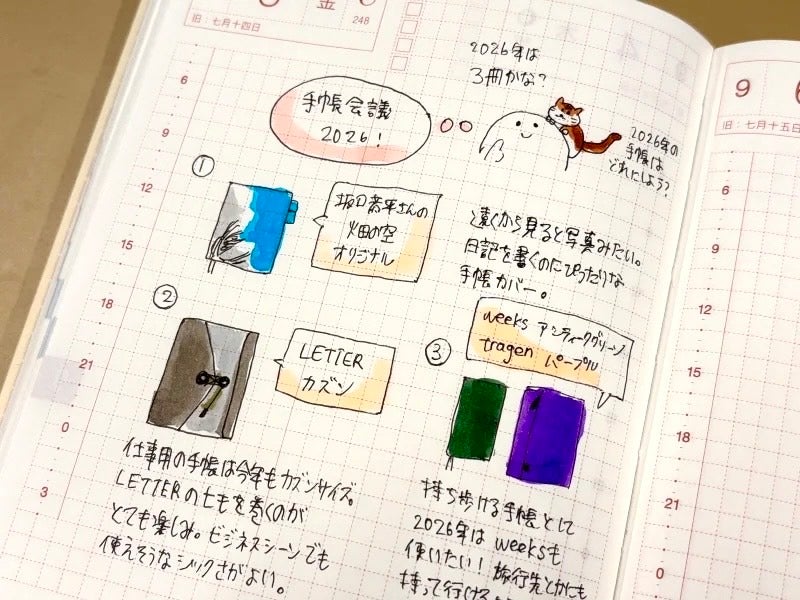 金
248
旧：七月十四日
2026年は
3冊かな？
手帳会議
2026！
2026年の
手帳は
どれにしよう？
①
畑の空
オリジナル
遠くから見ると写真みたい。
日記を書くのにぴったりな
手帳カバー。
②
LETTER
カズン
weeks アンティークグリーン
tragen パープル
③
仕事用の手帳は今年もカズンサイズ。
LETTERのヒモを巻くのが
とても楽しみ。ビジネスシーンでも
使えそうなシックさがよい。
持ち歩ける手帳として
2026年は weeksも
使いたい！旅行先とかにも
持って行ける
6
9
12
15
18
21
0
3
9
旧：七月十五日
6
9
12
15
18
21
0